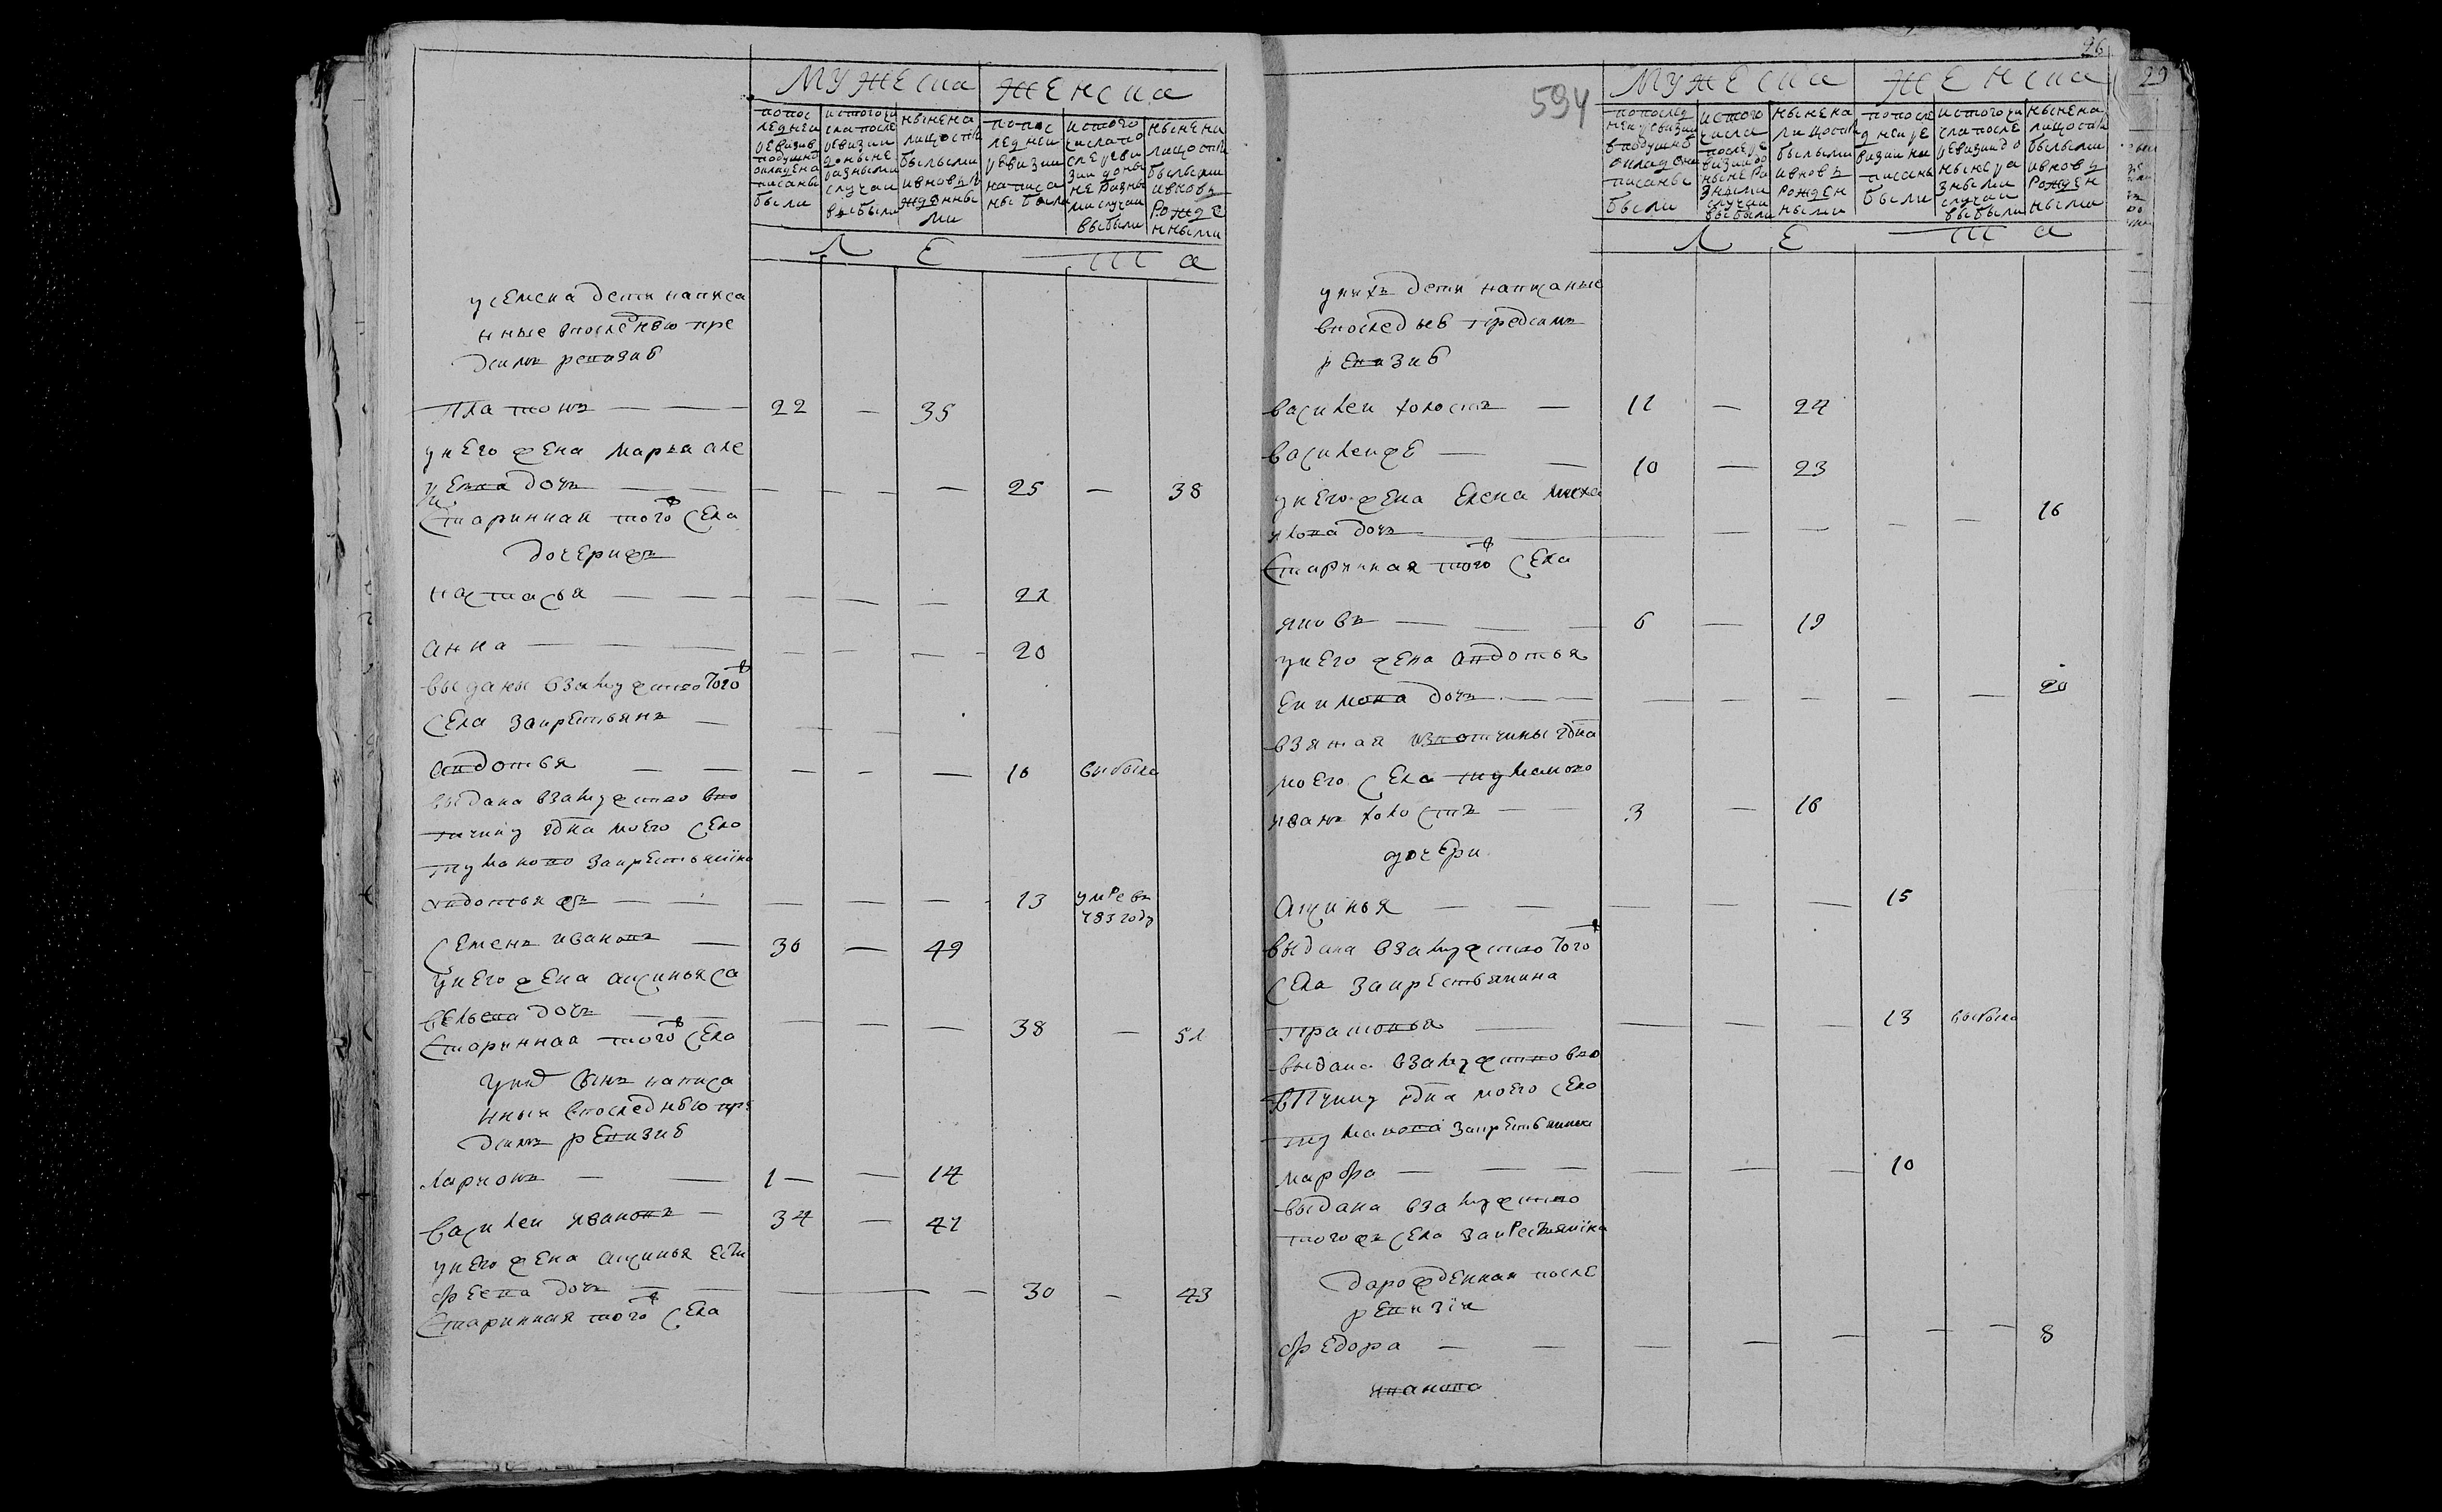 МУЖЕСКА ЖЕНСКА
попос
леднеи
ревизии
вподушно
окладена
писаны
были
истогочи
сла после
ревизии
доныне
разными
случаи
выбыли
ныне на
лицо ста
рыми
ивновь р
жденны
ми
попос
леднеи
ревизии
написа
ны были
истого
числа по
сле реви
зии доны
не разны
ми случаи
выбыли
ныне на
лицо ста
рыми
ивновь
рожде
нными
Л Е Т А
усемена дети написа
нные впоследнею пре
дсимъ ревизию
платонъ — — — 22 — 35
унего жена марья але
дочь — — — — — — 25 — 38
Старинная тогож села
дочерижъ
настасья — — — — — — 21
анна — — — — — — 20
выданы взамужство тогож
села закрестьянъ — — —
авдотья — — — — — 16 выбыла
выдана взамужство вво
тчину моего село
туманово закрестьянина
авдотья жъ — — — — — 13 умре въ
783 году
семенъ ивановъ — 36 — 49
унего жена аксинья са
вельева дочь — — — — — 38 — 51
Старинная тогож села
унихъ сынъ написа
нныи впоследнею пре
дсимъ ревизию
ларионъ — — 1 — — 14
василеи ивановъ — 34 — 47
унего жена аксинья
дочь — — — — — 30 — 43
Старинная тогож села
26
594
МУЖЕСКА ЖЕНСКА
попослед
неи ревизии
вподушно
окладе на
писаны
были
истого
числа
после ре
визии до
ныне ра
зными
случаи
выбыли
ныне на
лицо ста
рыми
ивновь
рожден
ными
попосле
днеи ре
визии на
писаны
были
истого чи
сла после
ревизии до
ныне ра
зными
случаи
выбыли
ныне на
лицо ста
рыми
ивновь
рожден
ными
Л Е Т А
унихъ дети написаные
впоследнею предсимъ
ревизию
василеи холостъ — 11 — 24
василеиже — — 10 — 23
унего жена Елена михаи
лова дочь — — — — — 16
Старинная тогож села
яковъ — — — 6 — 19
унего жена авдотья
дочь — — — — — — — 20
взятая извотчины
моего села туманово
иванъ холостъ — — 3 — 16
дочери
аксинья — — — — — 15
выдана взамужство тогож
села закрестьянина
прасковья — — — — 13 выбыла
выдана взамужство вво
тчину моего село
туманова закрестьянина
марфа — — — — — — 10
выдана взамужство
тогожъ села закрестьянина
дарожденная после
ревизіи
федора — — — — — — — 8
иванова